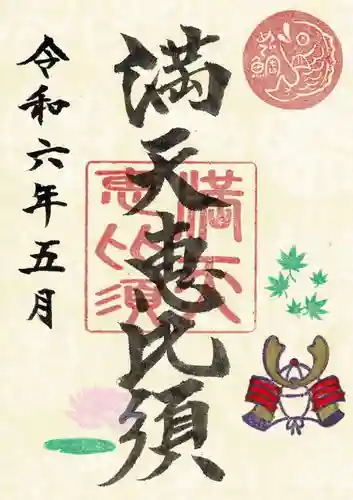 めで鯛
満天恵比須
満天
恵比須
令和六年五月